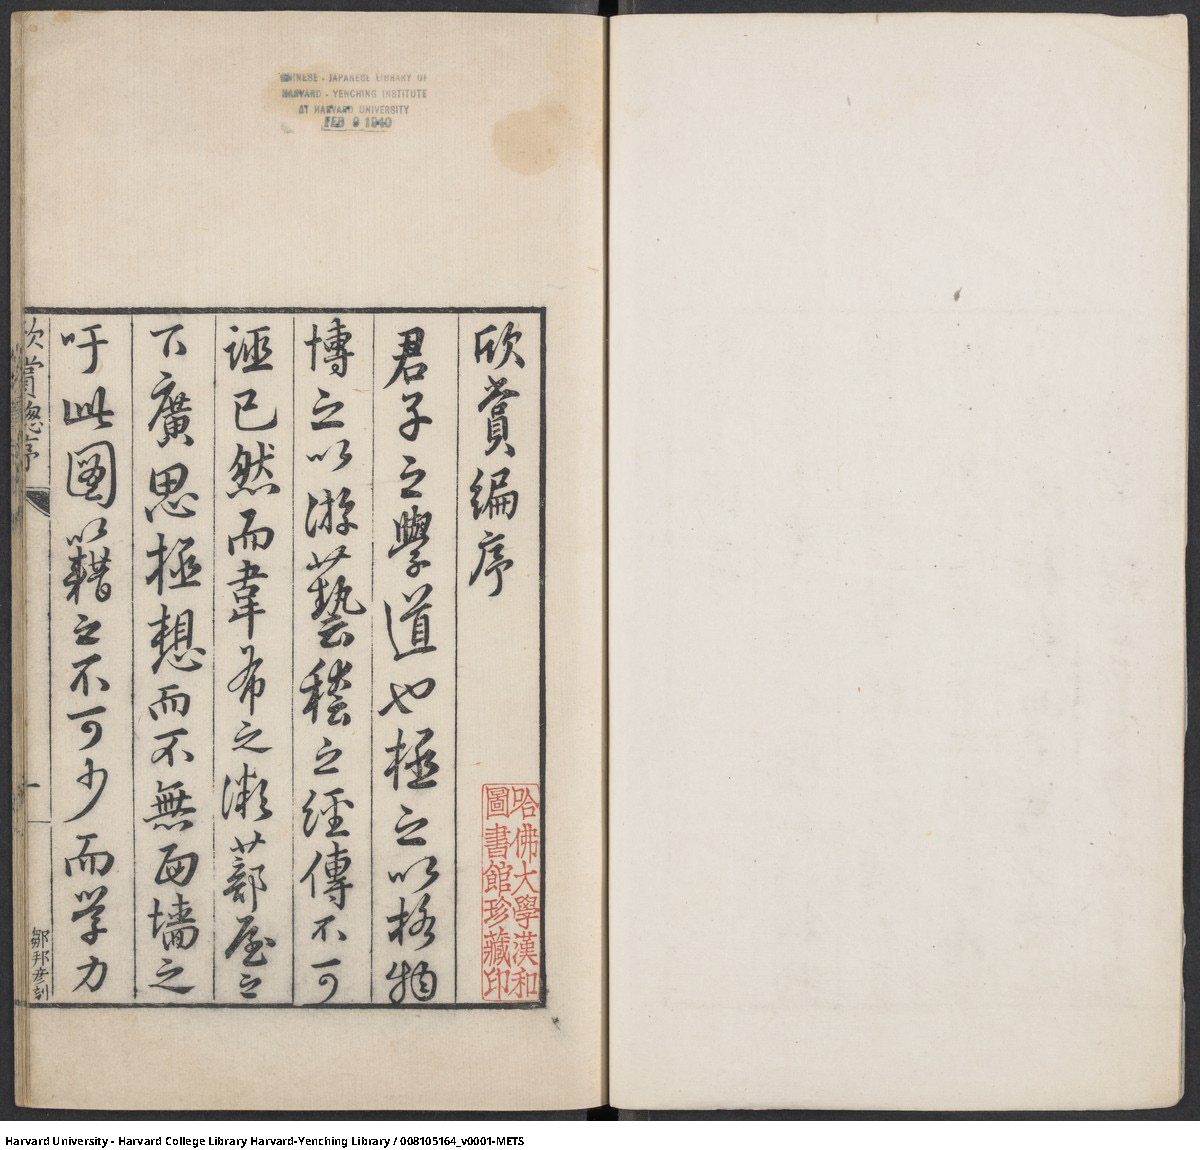 欣賞編序
君子之學道也極之以格物
博之以游藝稽之經傳不可
誣已然而韋布之濑蔀屋之
下廣思極想而不無面墻之
吁此圖以藉之不可少而学力
欣賞總序
一
鄒邦彥刻
哈佛大學漢和
圖書館珍藏印
CHINESE - JAPANESE LIBRARY OF
HARVARD - YENCHING INSTITUTE
AT HARVARD UNIVERSITY
FEB 9 1940
Harvard University - Harvard College Library Harvard-Yenching Library / 008105164_v0001-METS